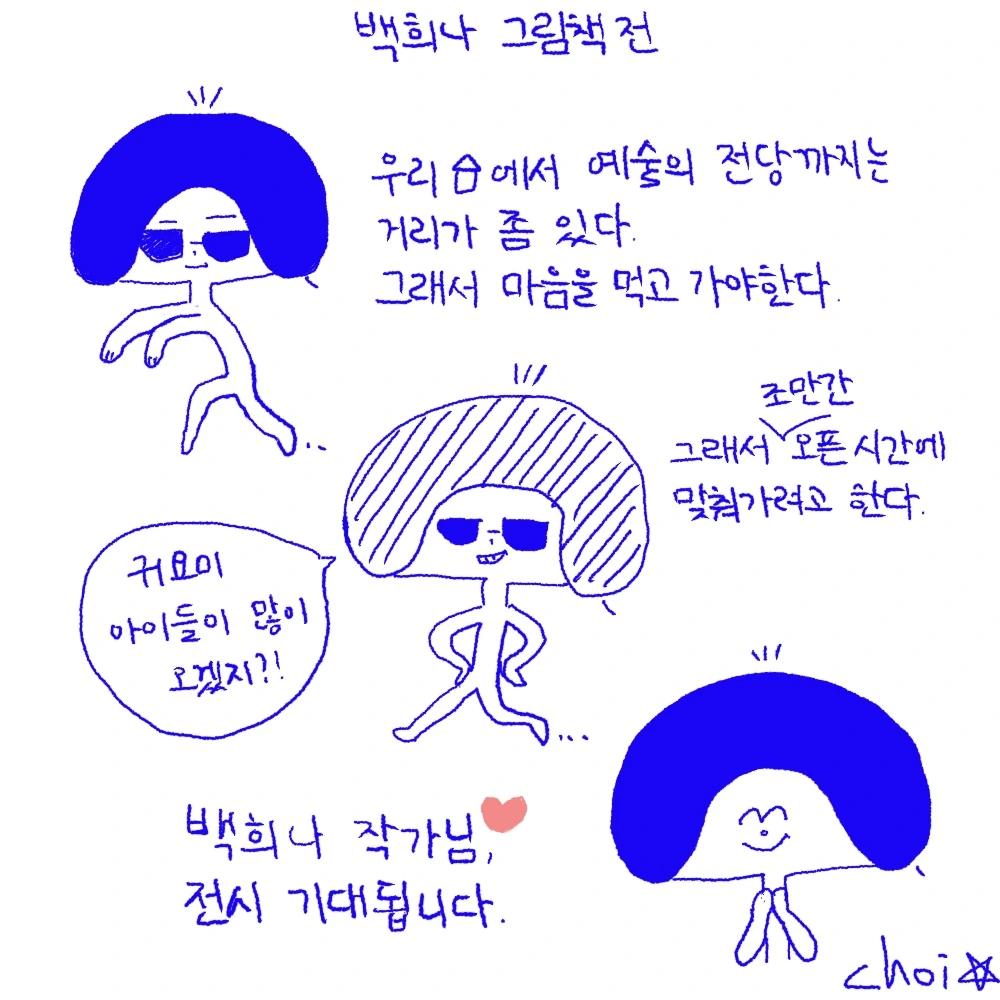 백희나 그림책 전
우리 에서 예술의 전당까지는
거리가 좀 있다.
그래서 마음을 먹고 가야한다.
조만간
그래서 오픈 시간에
맞춰가려고 한다.
귀요미
아이들이 많이
오겠지?!
백희나 작가님,
전시 기대됩니다.
choi